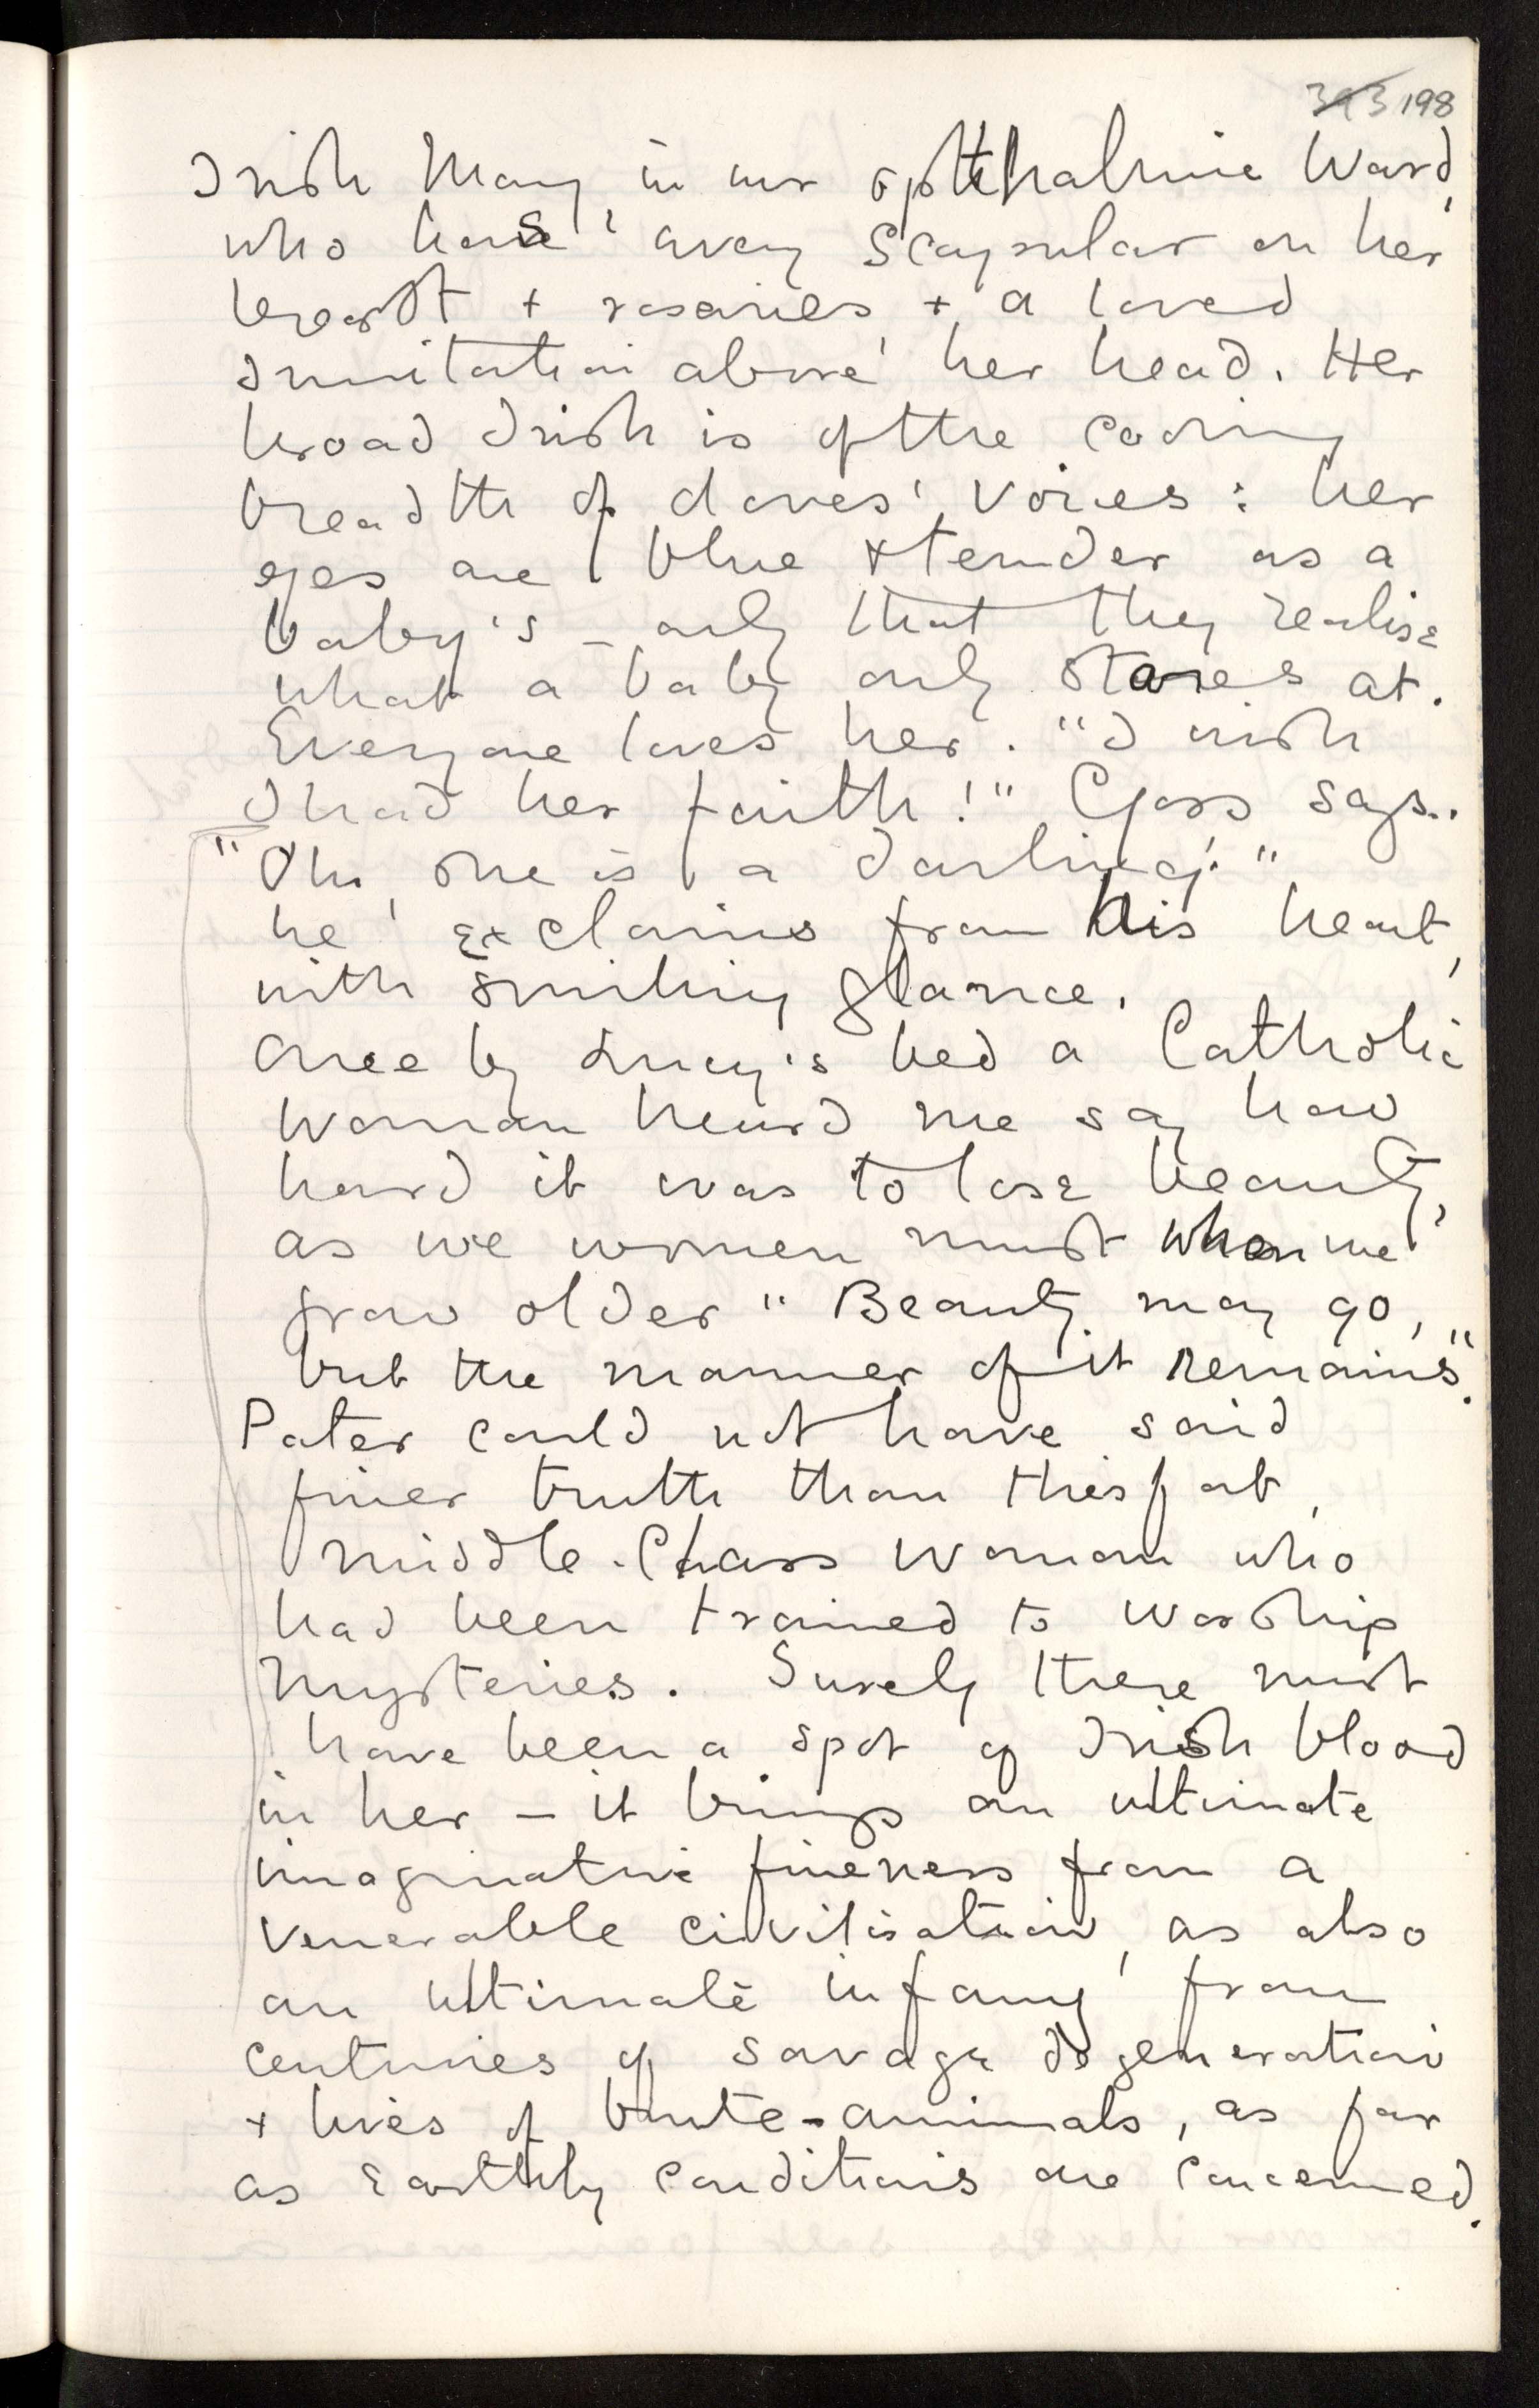 393 198
Irish Mary, in our opthalmic Ward,
who has every Scapular on her
breast + rosaries, + a loved
Imitation above her head. Her
broad Irish is of the cooing
breadth of doves' voices: her
eyes are blue & tender as a
baby's – only that they realise
what a baby only stares at.
Everyone loves her. "I wish
I had her faith!" Goss says..
"Oh, she is a darling!"
he exclaims from his heart,
with smiling glance.
Once by Lucy's bed a Catholic
woman heard me say how
hard it was to lose beauty,
as we women must when we
grow older "Beauty may go,
but the manner of it remains".
Pater could not have said
finer truth than this fat,
middle-Class woman who
had been trained to worship
Mysteries. Surely there must
have been a spot of Irish blood
in her – it brings an ultimate
imaginative fineness from a
venerable civilisation, as also
an ultimate infamy from
centuries of savage degeneration
+ lives of brute-animals, as far
as earthly conditions are concerned.